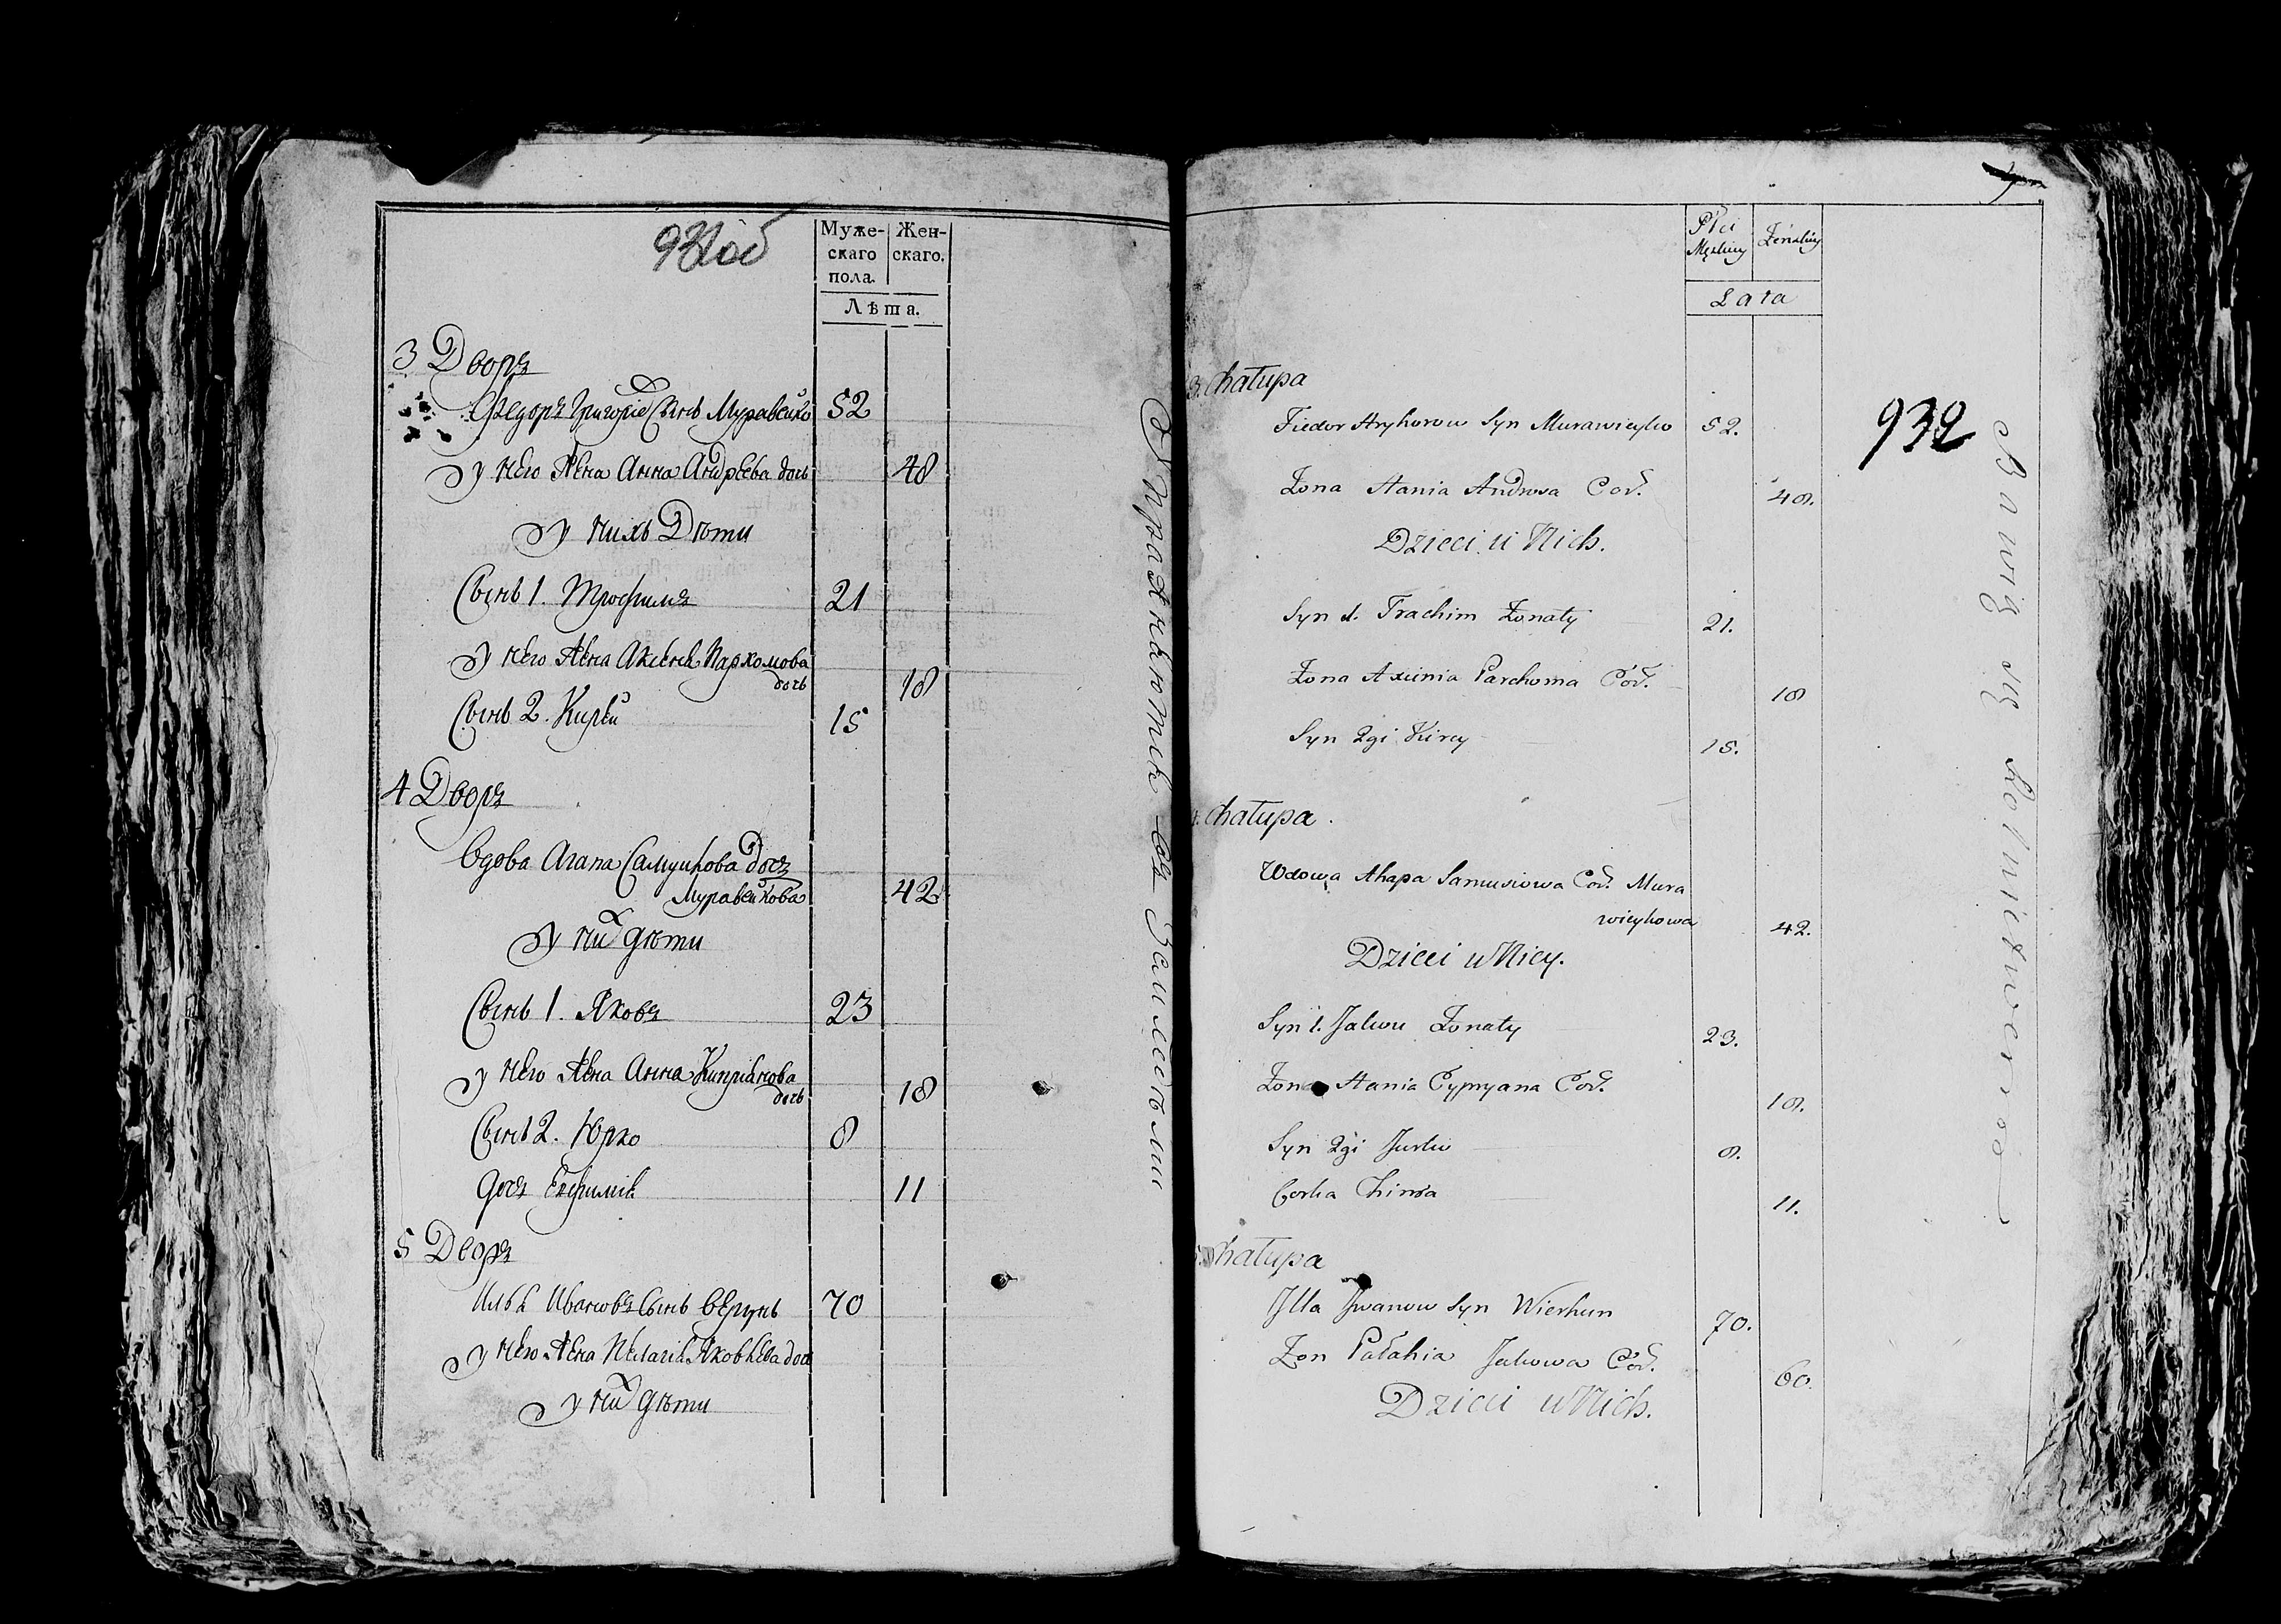 931об
Муже- Жен-
скаго скаго.
пола.
Лѣта.
3 Дворъ
Федоръ Григорьевъ Сынъ Муравейко 52
у него Жена Анна Андрѣева дочь 48
у нихъ Дѣти
Сынъ 1. Трофимъ 21
у него Жена Аксенья Пархомова
дочь 18
Сынъ 2. Кирѣй 15
4 Дворъ
Вдова Агапа Самуилова дочь
Муравейкова 42
у ней дѣти
Сынъ 1. Яковъ 23
у него Жена Анна Киприанова
дочь 18
Сынъ 2. Юрко 8
дочь Евфимія 11
5 Дворъ
Илья Ивановъ Сынъ Вергунъ 70
у него Жена Пелагія Яковлева дочь
у них дѣти
Płci
Męskiey Żeńskiey
Lata
3. Chałupa
932
Fiedor Hryhorow Syn Murawieyko 52.
Żona Hania Andrus Cór. 48.
Dzieci u Nich.
Syn 1. Trachim Żonaty 21.
Żona Axinia Parchoma Cór. 18
Syn 2gi Kirey 15.
Chałupa.
Wdowa Ahapa Samusiowa Cór. Mura
wieykowa 42.
Dzieci u Niey.
Syn 1. Jakow Żonaty 23.
Żona Hania Cypryana Cór. 18.
Syn 2gi Jurko 8.
Corka Chimia 11.
Chałupa
Jlla Jwanow Syn Wierhun 70.
Żon Pałahia Jakowa Cór. 60.
Dzieci u Nich.